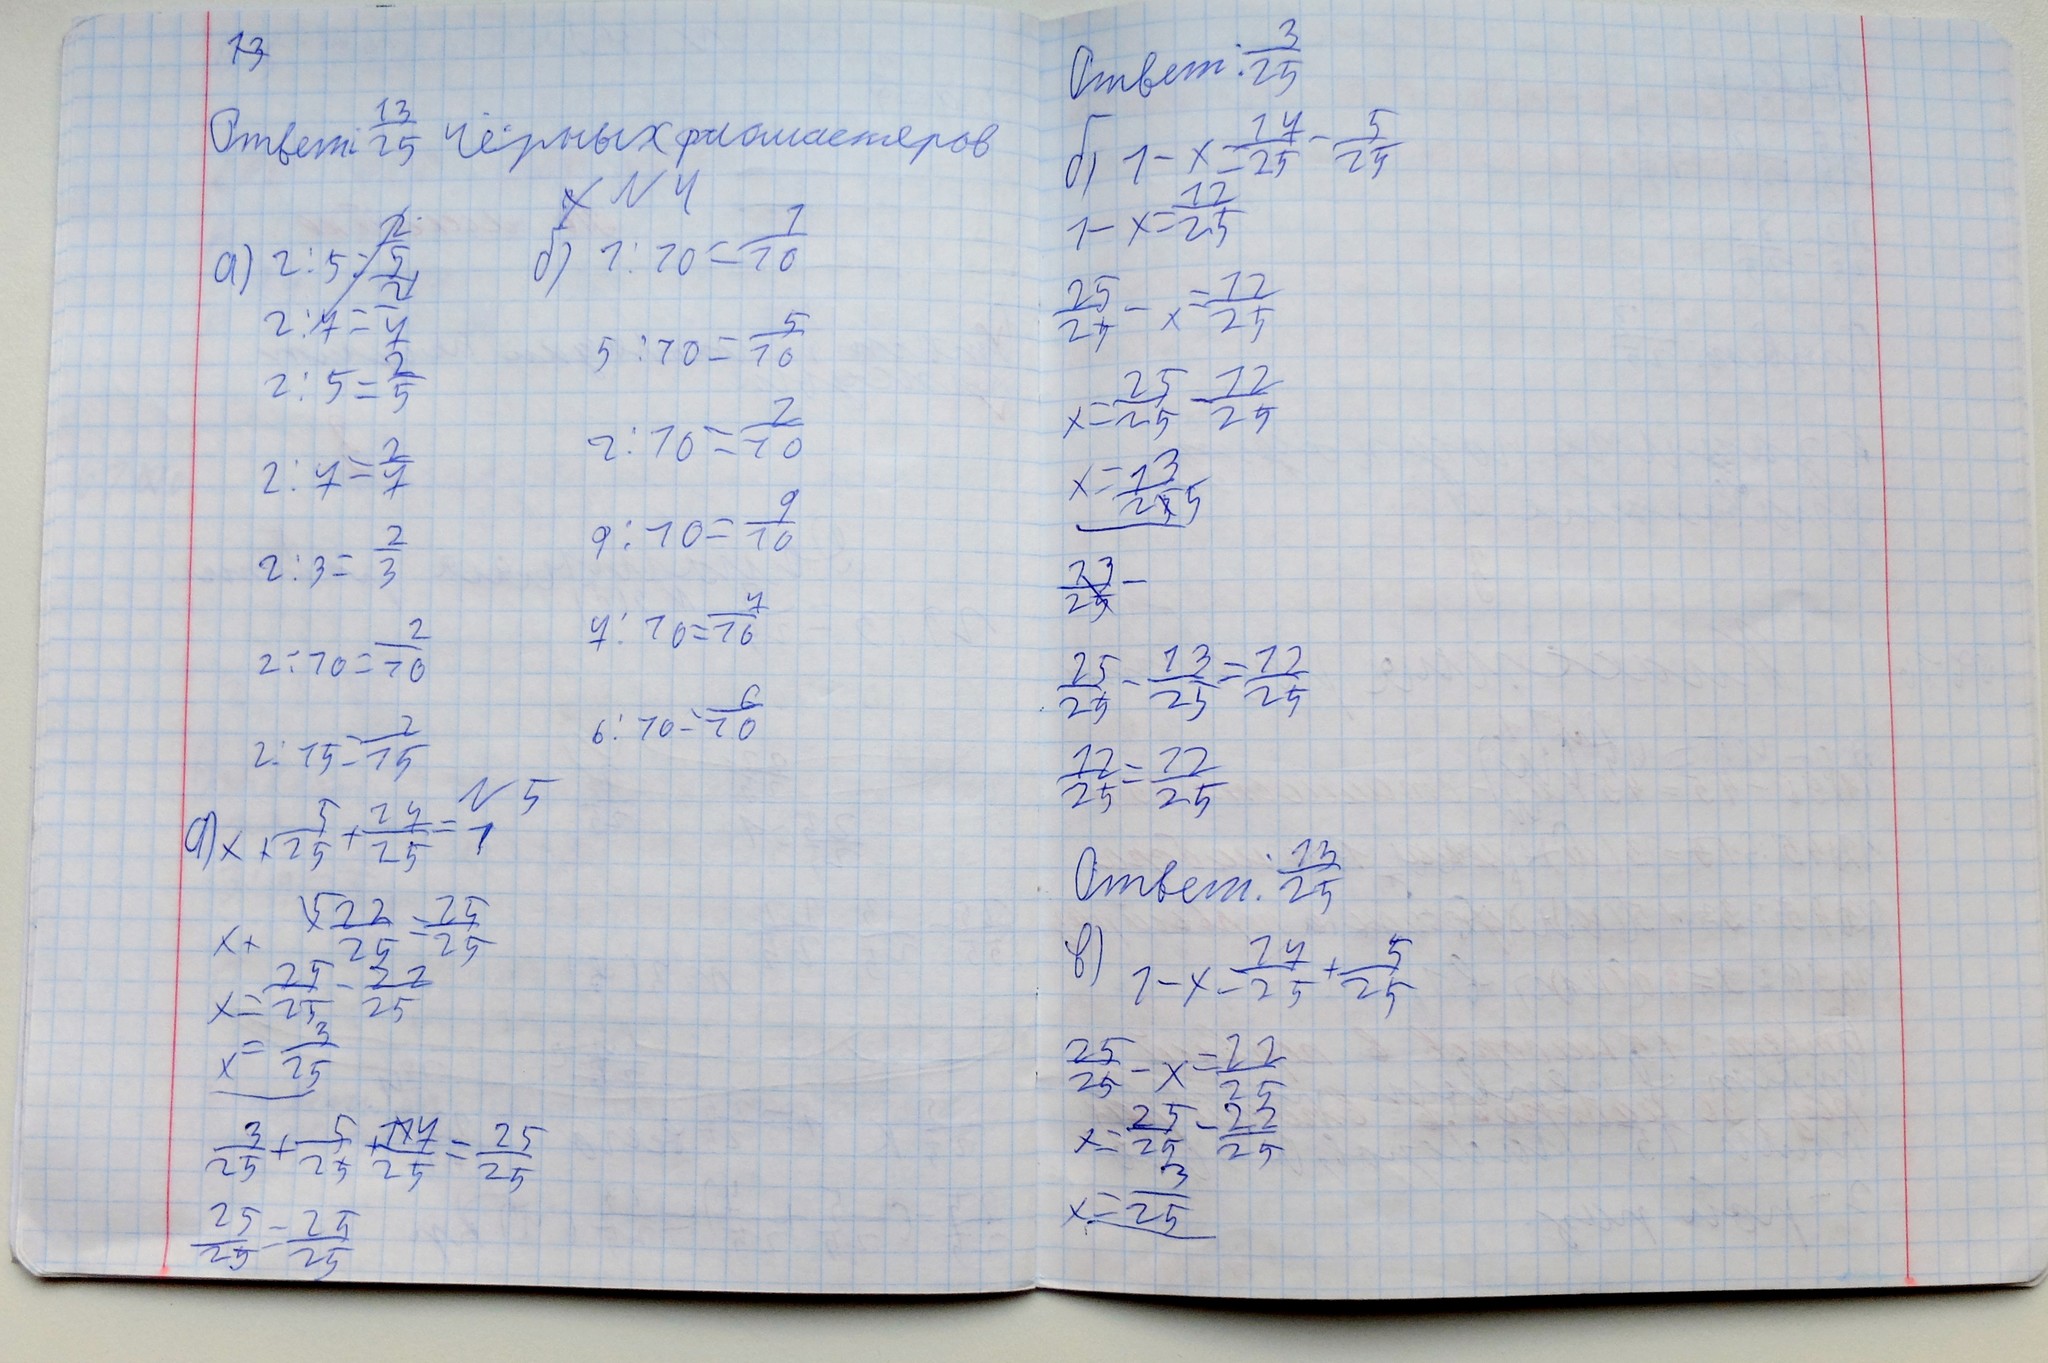 13
Ответ: 13/25 чёрных фломастеров
№ 4
а) 2:5=2/5
2:7=2/7
2:5=2/5
2:7=2/7
2:3=2/3
2:10=2/10
2:15=2/15
б) 1:10=1/10
5:10=5/10
2:10=2/10
9:10=9/10
7:10=7/10
6:10=6/10
№ 5
а) x+5/25+17/25=1
x+22/25=25/25
x=25/25-22/25
x=3/25
3/25+5/25+17/25=25/25
25/25=25/25
Ответ: 3/25
б) 1-x=17/25-5/25
1-x=12/25
25/25-x=12/25
x=25/25-12/25
x=13/25
13/25-
25/25-13/25=12/25
12/25=12/25
Ответ: 13/25
в) 1-x=17/25+5/25
25/25-x=22/25
x=25/25-22/25
x=3/25